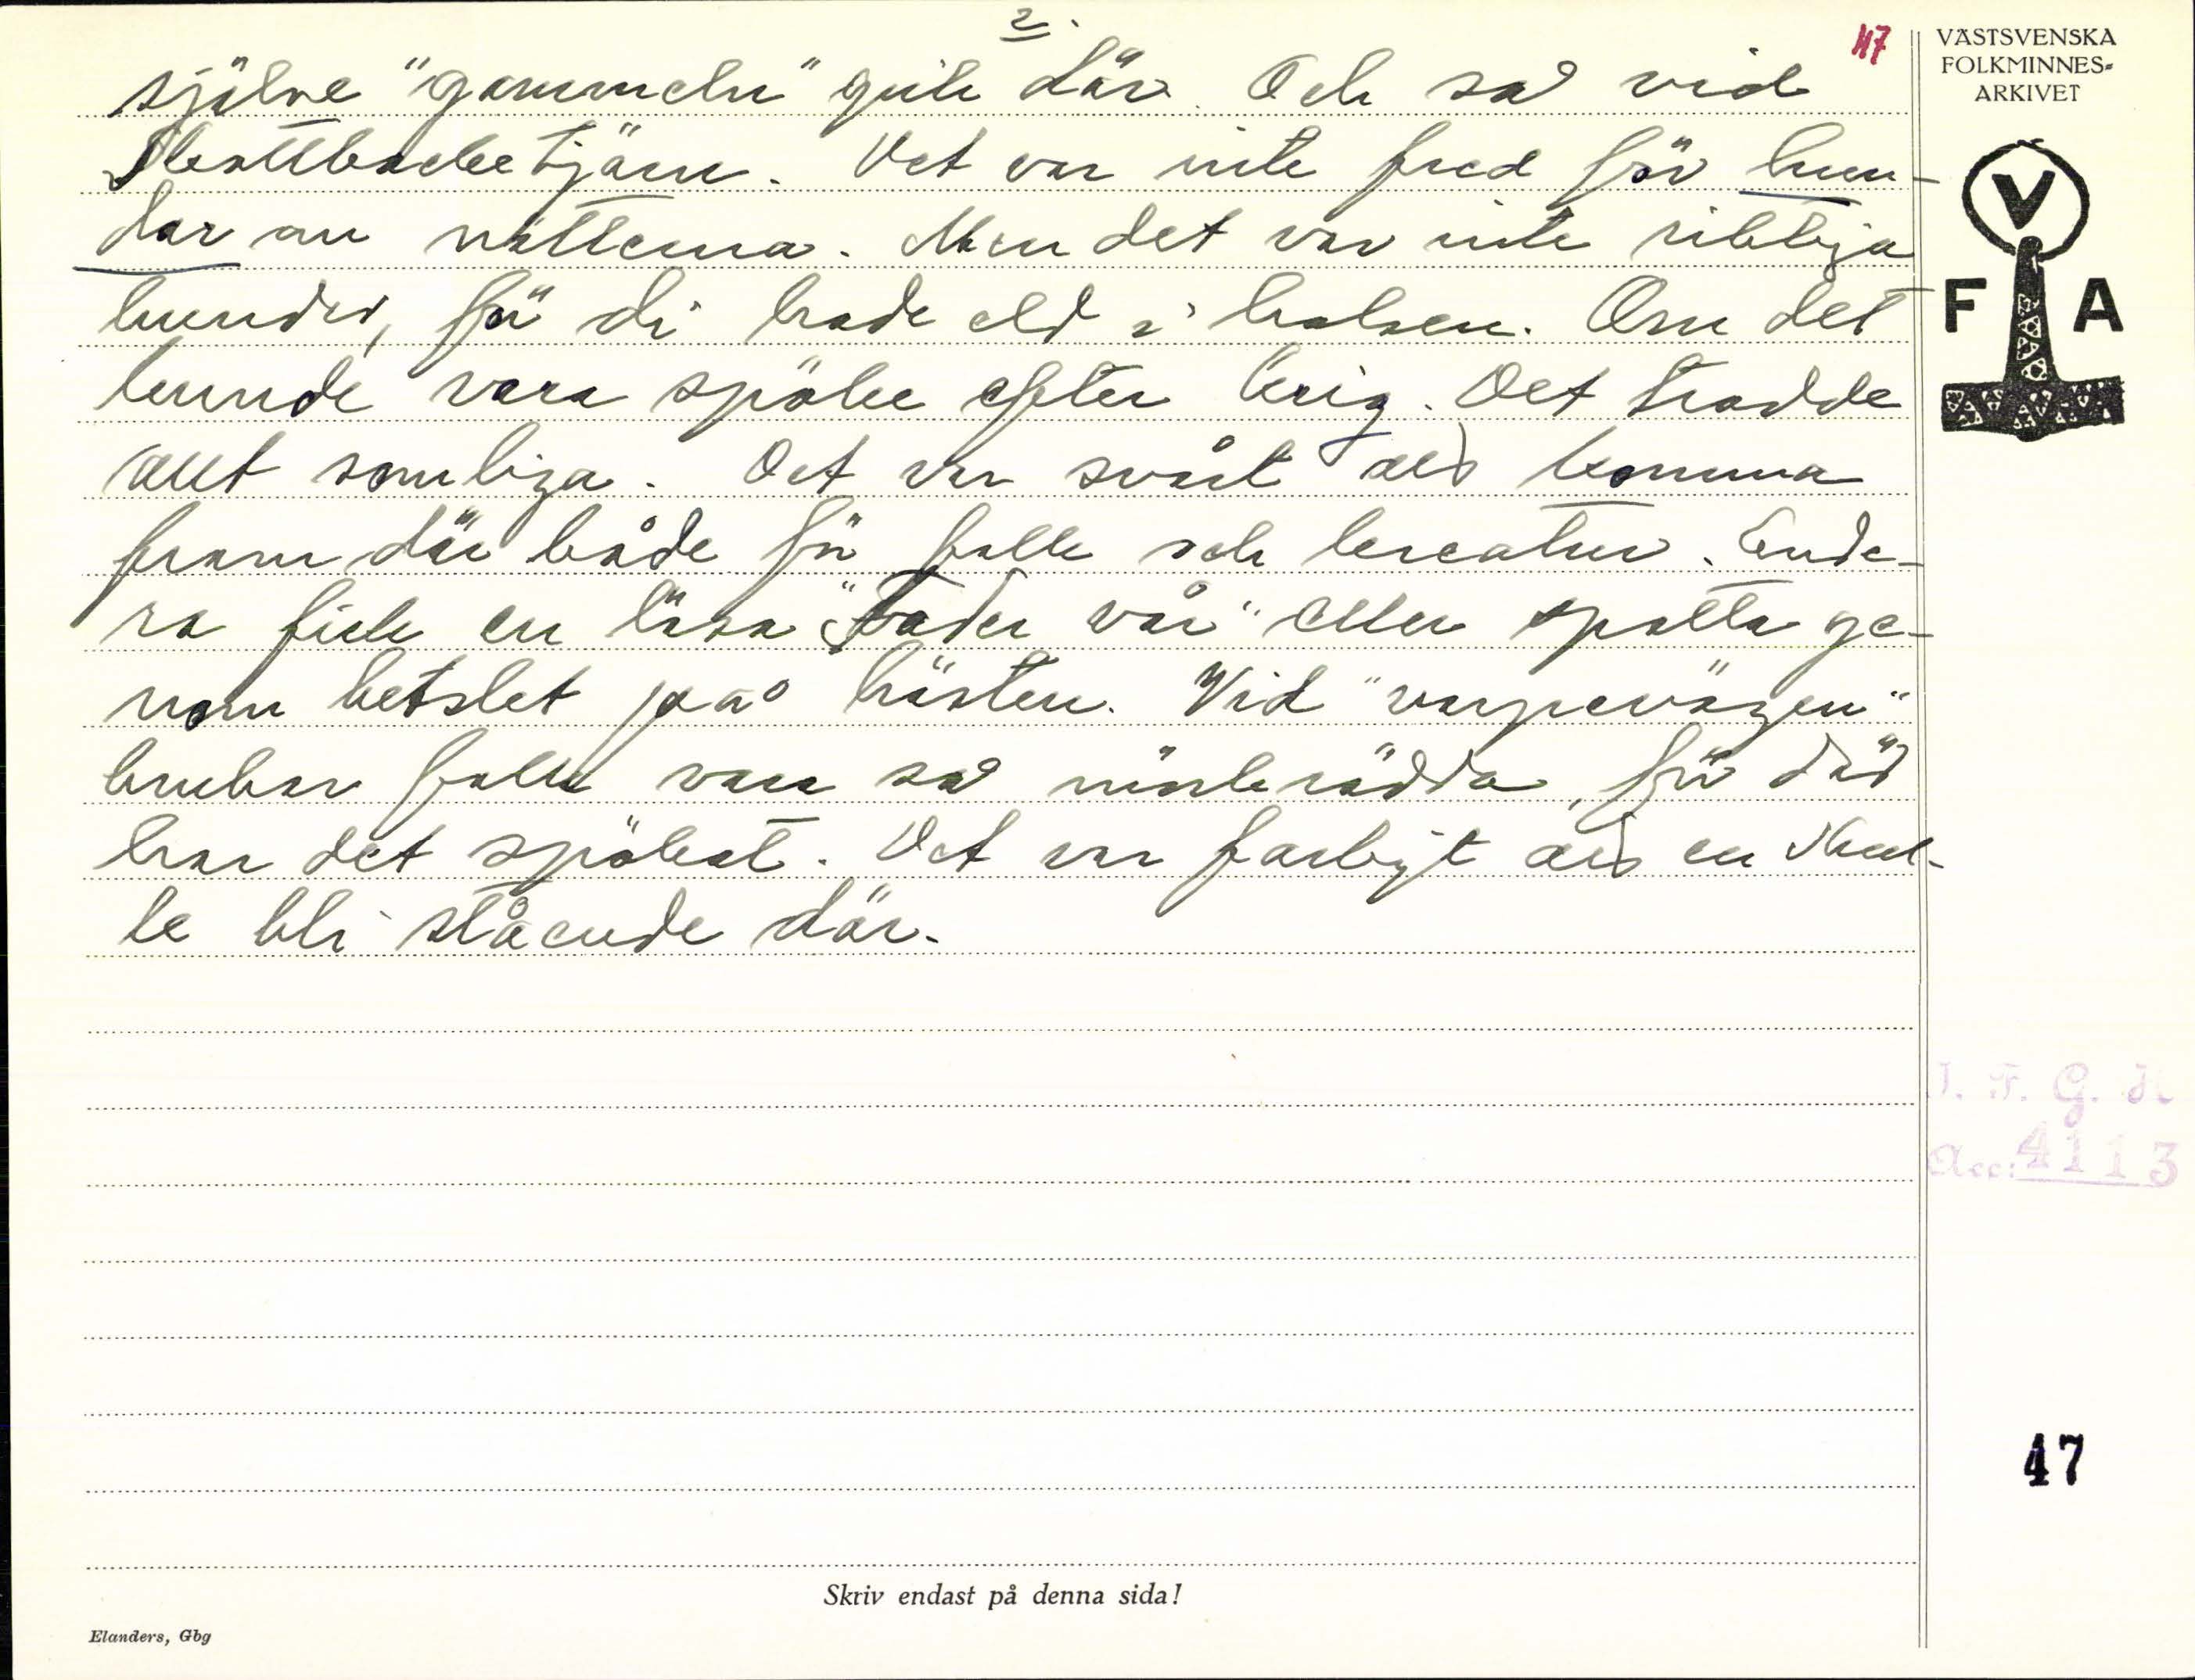 2.
47
själve "gammeln" gick där. Och så vid
Skottbacke tjärn. Det var inte fred för hun-
dar om nätterna. Men det var inte riktiga
hundar, för di hade eld i halsen. Om det
kunde vara spöke efter krig. Det trodde
allt somliga. Det var svårt att komma
fram där både för folk och kreatur. Ende-
ra fick en läsa "Fader vår" eller spotta ge-
nom betslet på hästen. Vid "varpevägen"
brukar folk vara så mörkrädda, för där
har det spökat. Det var farligt att en skul-
le bli stående där.
VÄSTSVENSKA
FOLKMINNES-
ARKIVET
V
F A
I. F. G. H.
Acc: 4113
47
Skriv endast på denna sida!
Elanders, Gbg